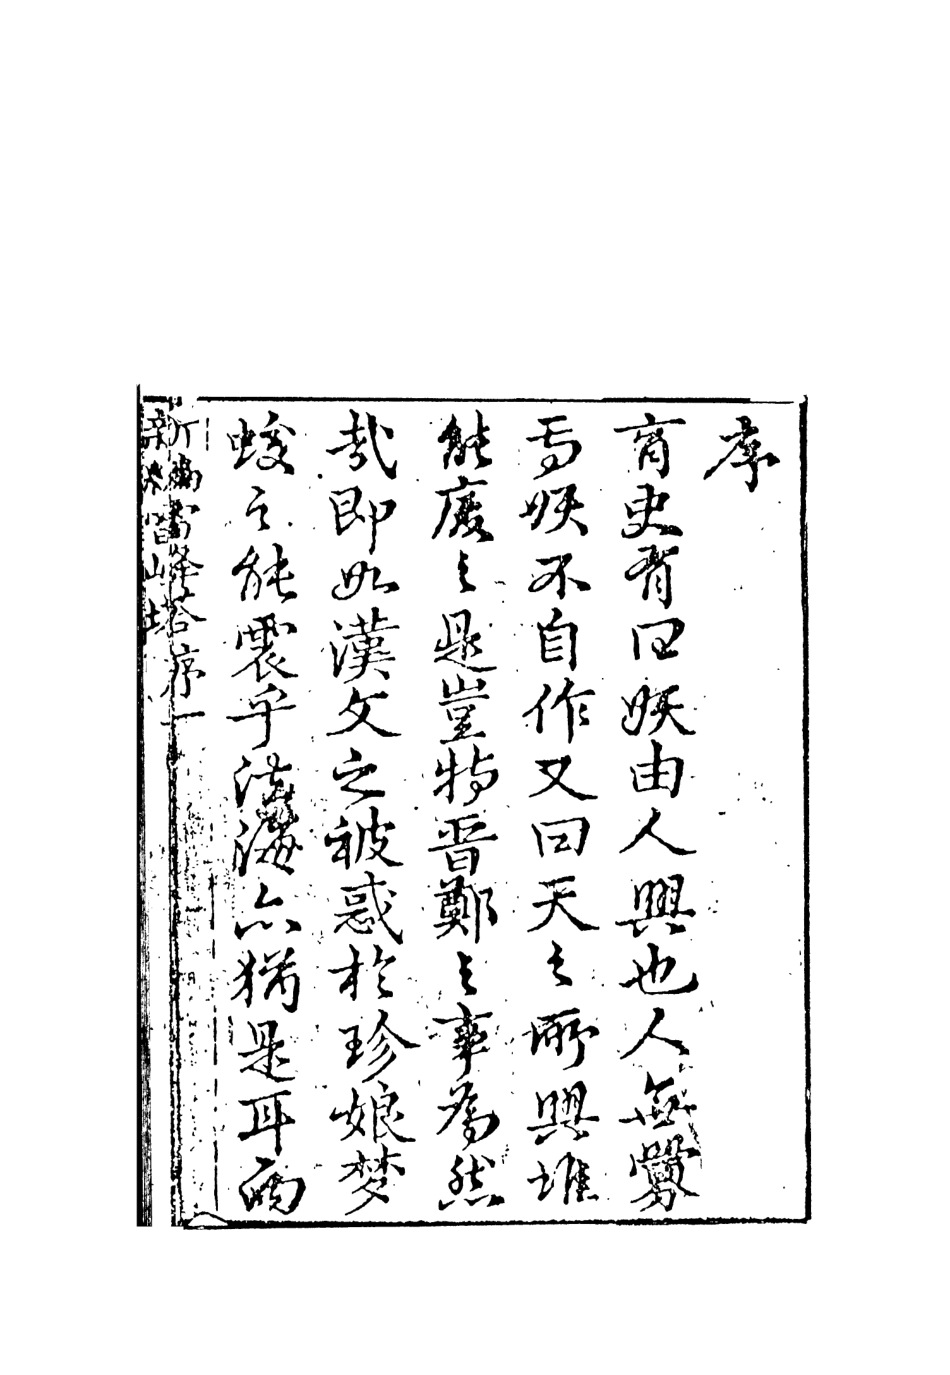 序
育史有曰妖由人興也人無釁
焉妖不自作又曰天之所興誰
能廢之是豈特晉鄭之事為然
哉即如漢文之被惑於珍娘梦
蛟之能震乎法海亦猶是耳
新編雷峰塔序一